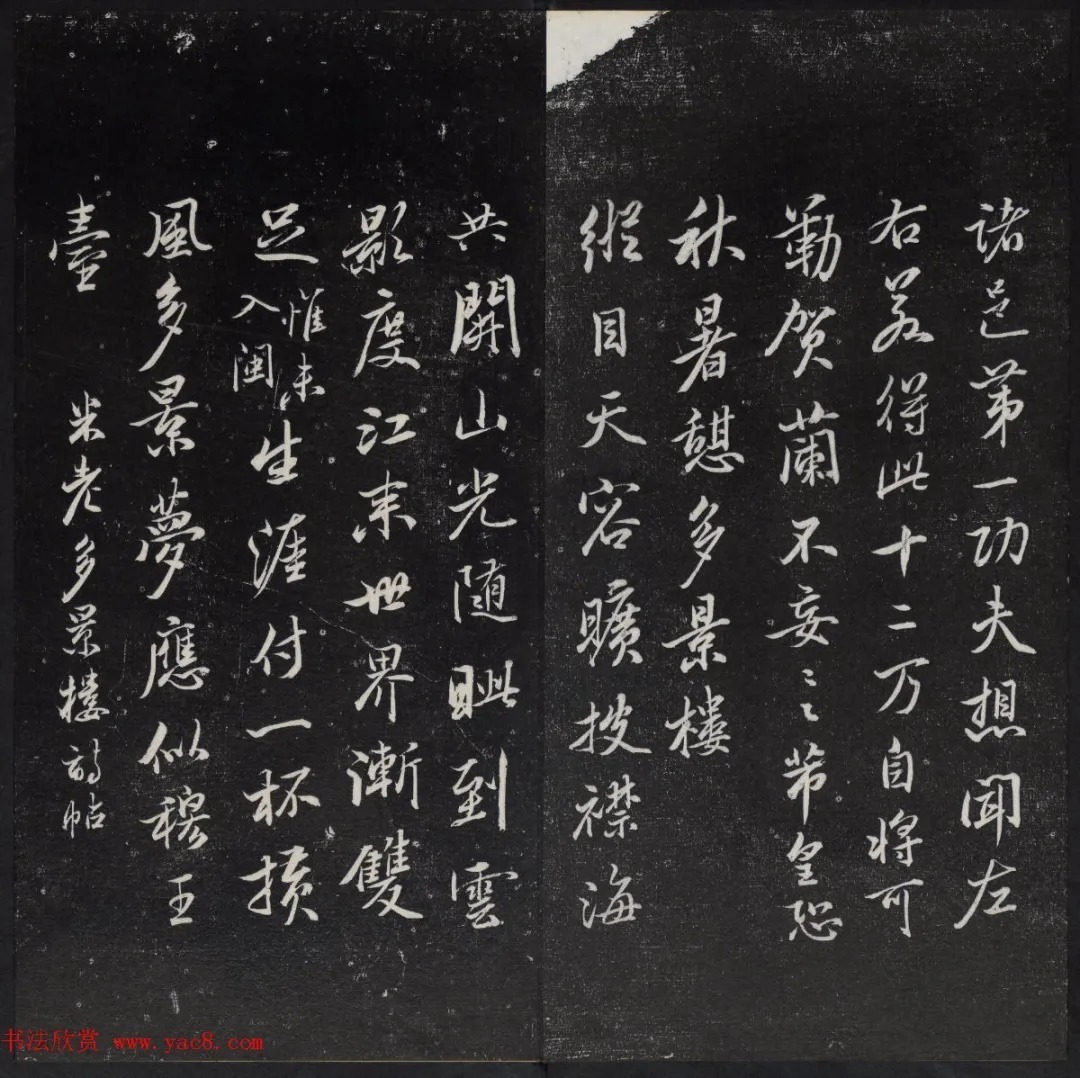 诸邑第一功夫想聞左
右若得此十二万自将可
勒賀蘭不妄〻帝皇恐
秋暑憩多景樓
縱目天容曠披襟海
共開山光随眦到雲
影度江来世界漸雙
足惟未入閩生涯付一杯横
風多景夢應似穆王
臺
米老多景樓詩帖
书法欣赏 www.yac8.com